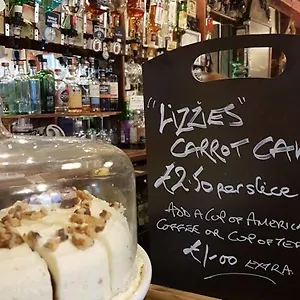 "LiZZiES"
CARROT CA
£2.50 per slice
ADD A CUP OF AMERICA
COFFEE OR CUP OF TE
£1-00 EXTRA